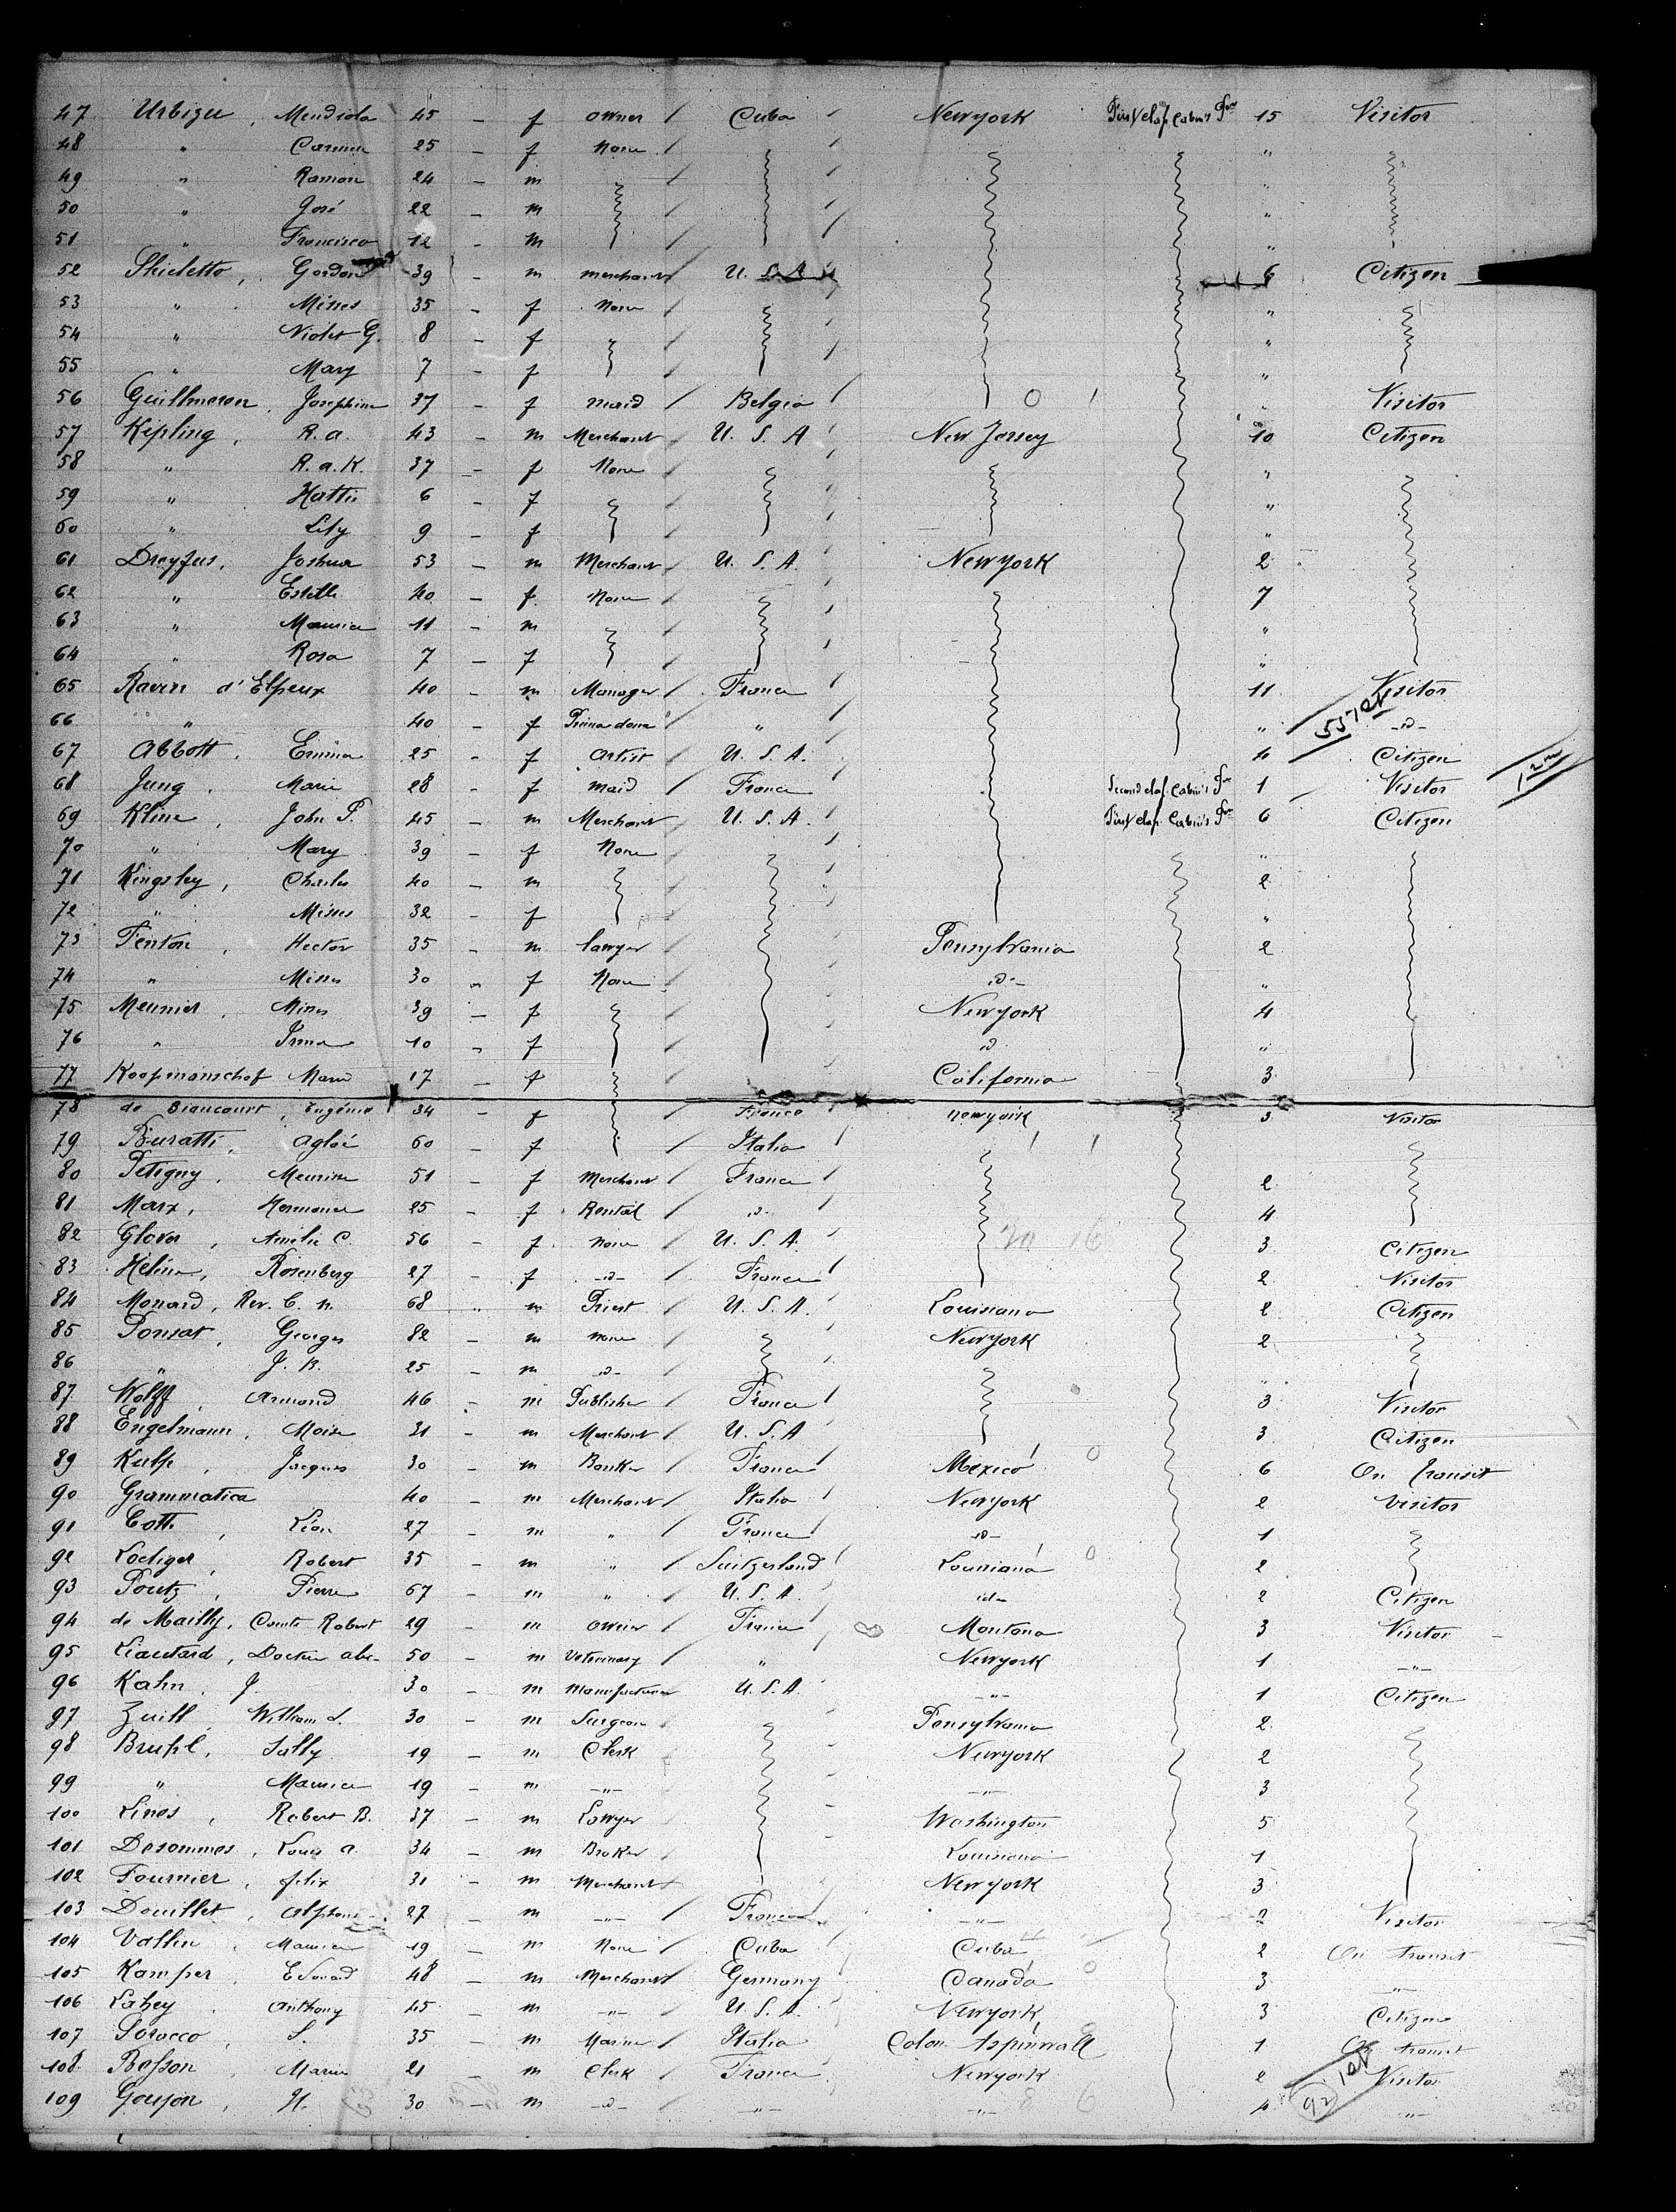 47 Urbizu, Mendiola 45 - f owner / Cuba / New york First class Cabin's For 15 Visitor
48 " Carmen 25 - f None / / "
49 " Ramon 24 - m / / "
50 " José 22 - m / / "
51 " Francisco 12 - m / / "
52 Gordon 39 - m merchant / U. S. A 6 Citizen
53 " Misses 35 - f None / / "
54 " Violet G. 8 - f / / "
55 " Mary 7 - f / / "
56 Josephine 37 - f maid / Belgia / 0 / " Visitor
57 Kipling, R. a. 43 - m Merchant / U. S. A / New Jersey 10 Citizen
58 " R. a. K. 37 - f None / / "
59 " Hattie 6 - f / / "
60 " Lily 9 - f / / "
61 Dreyfus, Joshua 53 - m Merchant / U. S. A. / New york 2
62 " Estelle 40 - f None / / 7
63 " Maurice 11 - m / / "
64 " Rosa 7 - f / / "
65 Ravin d'Elpeux 40 - m Manager / France / 11 Visitor
66 " 40 - f Prima dona / " / " -id-
55 1st
67 Abbott, Emma 25 - f artist / U. S. A. / 4 Citizen
1 2nd
68 Jung, Marie 28 - f maid / France / Second clas. Cabin's For 1 Visitor
69 Kline, John P. 45 - m Merchant / U. S. A. / First clas. Cabin's For 6 Citizen
70 " Mary 39 - f None / / "
71 Kingsley, Charles 40 - m / / 2
72 " Misses 32 - f / / "
73 Fenton, Hector 35 - m lawyer / / Pensylvania 2
74 " Misses 30 " f None / / -id- "
75 Meunier, Misses 39 - f / / New york 4
76 " Irma 10 " f / / id "
77 Koopmanschof Marie 17 - f / California 3
78 de Biancourt, Eugénie 34 - f France New york 3 Visitor
79 Buratti, aglaé 60 - f / Italia /
80 Petigny, 51 - f Merchant / France / 2
81 Marx, Hermance 25 - f / -id- / 4
82 Glover, Amélie C. 56 - f None / U. S. A. / 3 Citizen
83 Hélène, Rosenberg 27 - f -id- / France / 2 Visitor
84 Monard, Rev. C. n. 68 " m Priest / U. S. A. / Louisiana 2 Citizen
85 Ponsat, Georges 82 - m None / / New york 2
86 " J. B. 25 - m -id- / / "
87 Wolff, Armand 46 - m Publisher / France / 3 Visitor
88 Engelmann, Moise 31 - m Merchant / U. S. A 3 Citizen
89 Kulp, Jacques 30 - m Banker / France / Mexico / 0 6 On transit
90 Grammatica 40 - m Merchant / Italia / New york 2 Visitor
91 Cotti, Léon 27 - m " / France / -id- 1
92 Robert 35 - m " / Suitzerland / Louisiana / 0 2
93 Poutz, Pierre 67 - m " / U. S. A. / -id- 2 Citizen
94 de Mailly, Comte Robert 29 - m owner / France / Montana 3 Visitor -
95 Liautard, Docteur 50 - m Veterinary / " New york 1 -"-
96 Kahn, J. 30 - m Manufacturer U. S. A. -"- 1 Citizen
97 Zuill, William L. 30 - m Surgeon Pensylvania 2
98 Bruhl, Sally 19 - m Clerk New york 2
99 " Maurice 19 - m -"- -"- 3
100 Lines, Robert B. 37 - m Lawyer Washington 5
101 Desommes, Louis a. 34 - m Broker Louisiana 1
102 Fournier, felix 31 - m Merchant New york 3
103 Douillet, alphonse 27 - m -"- / France -"- 2 Visitor
104 Vallin, Maurice 19 - m None / Cuba Cuba 2 On transit
105 Kamper, Edouard 48 - m Merchant / Germany Canada / 0 3 -"-
106 Lahey, Anthony 45 - m -"- / U. S. A. New york 3 Citizen
107 Sorocco, S. 35 - m / Italia Colon Aspinwall 1 On transit
108 Marie 21 - m Clerk / France New york 2 Visitor
92 1st
109 Goujon, H. 30 - m -id- / -"- -"- 8 6 4 -"-